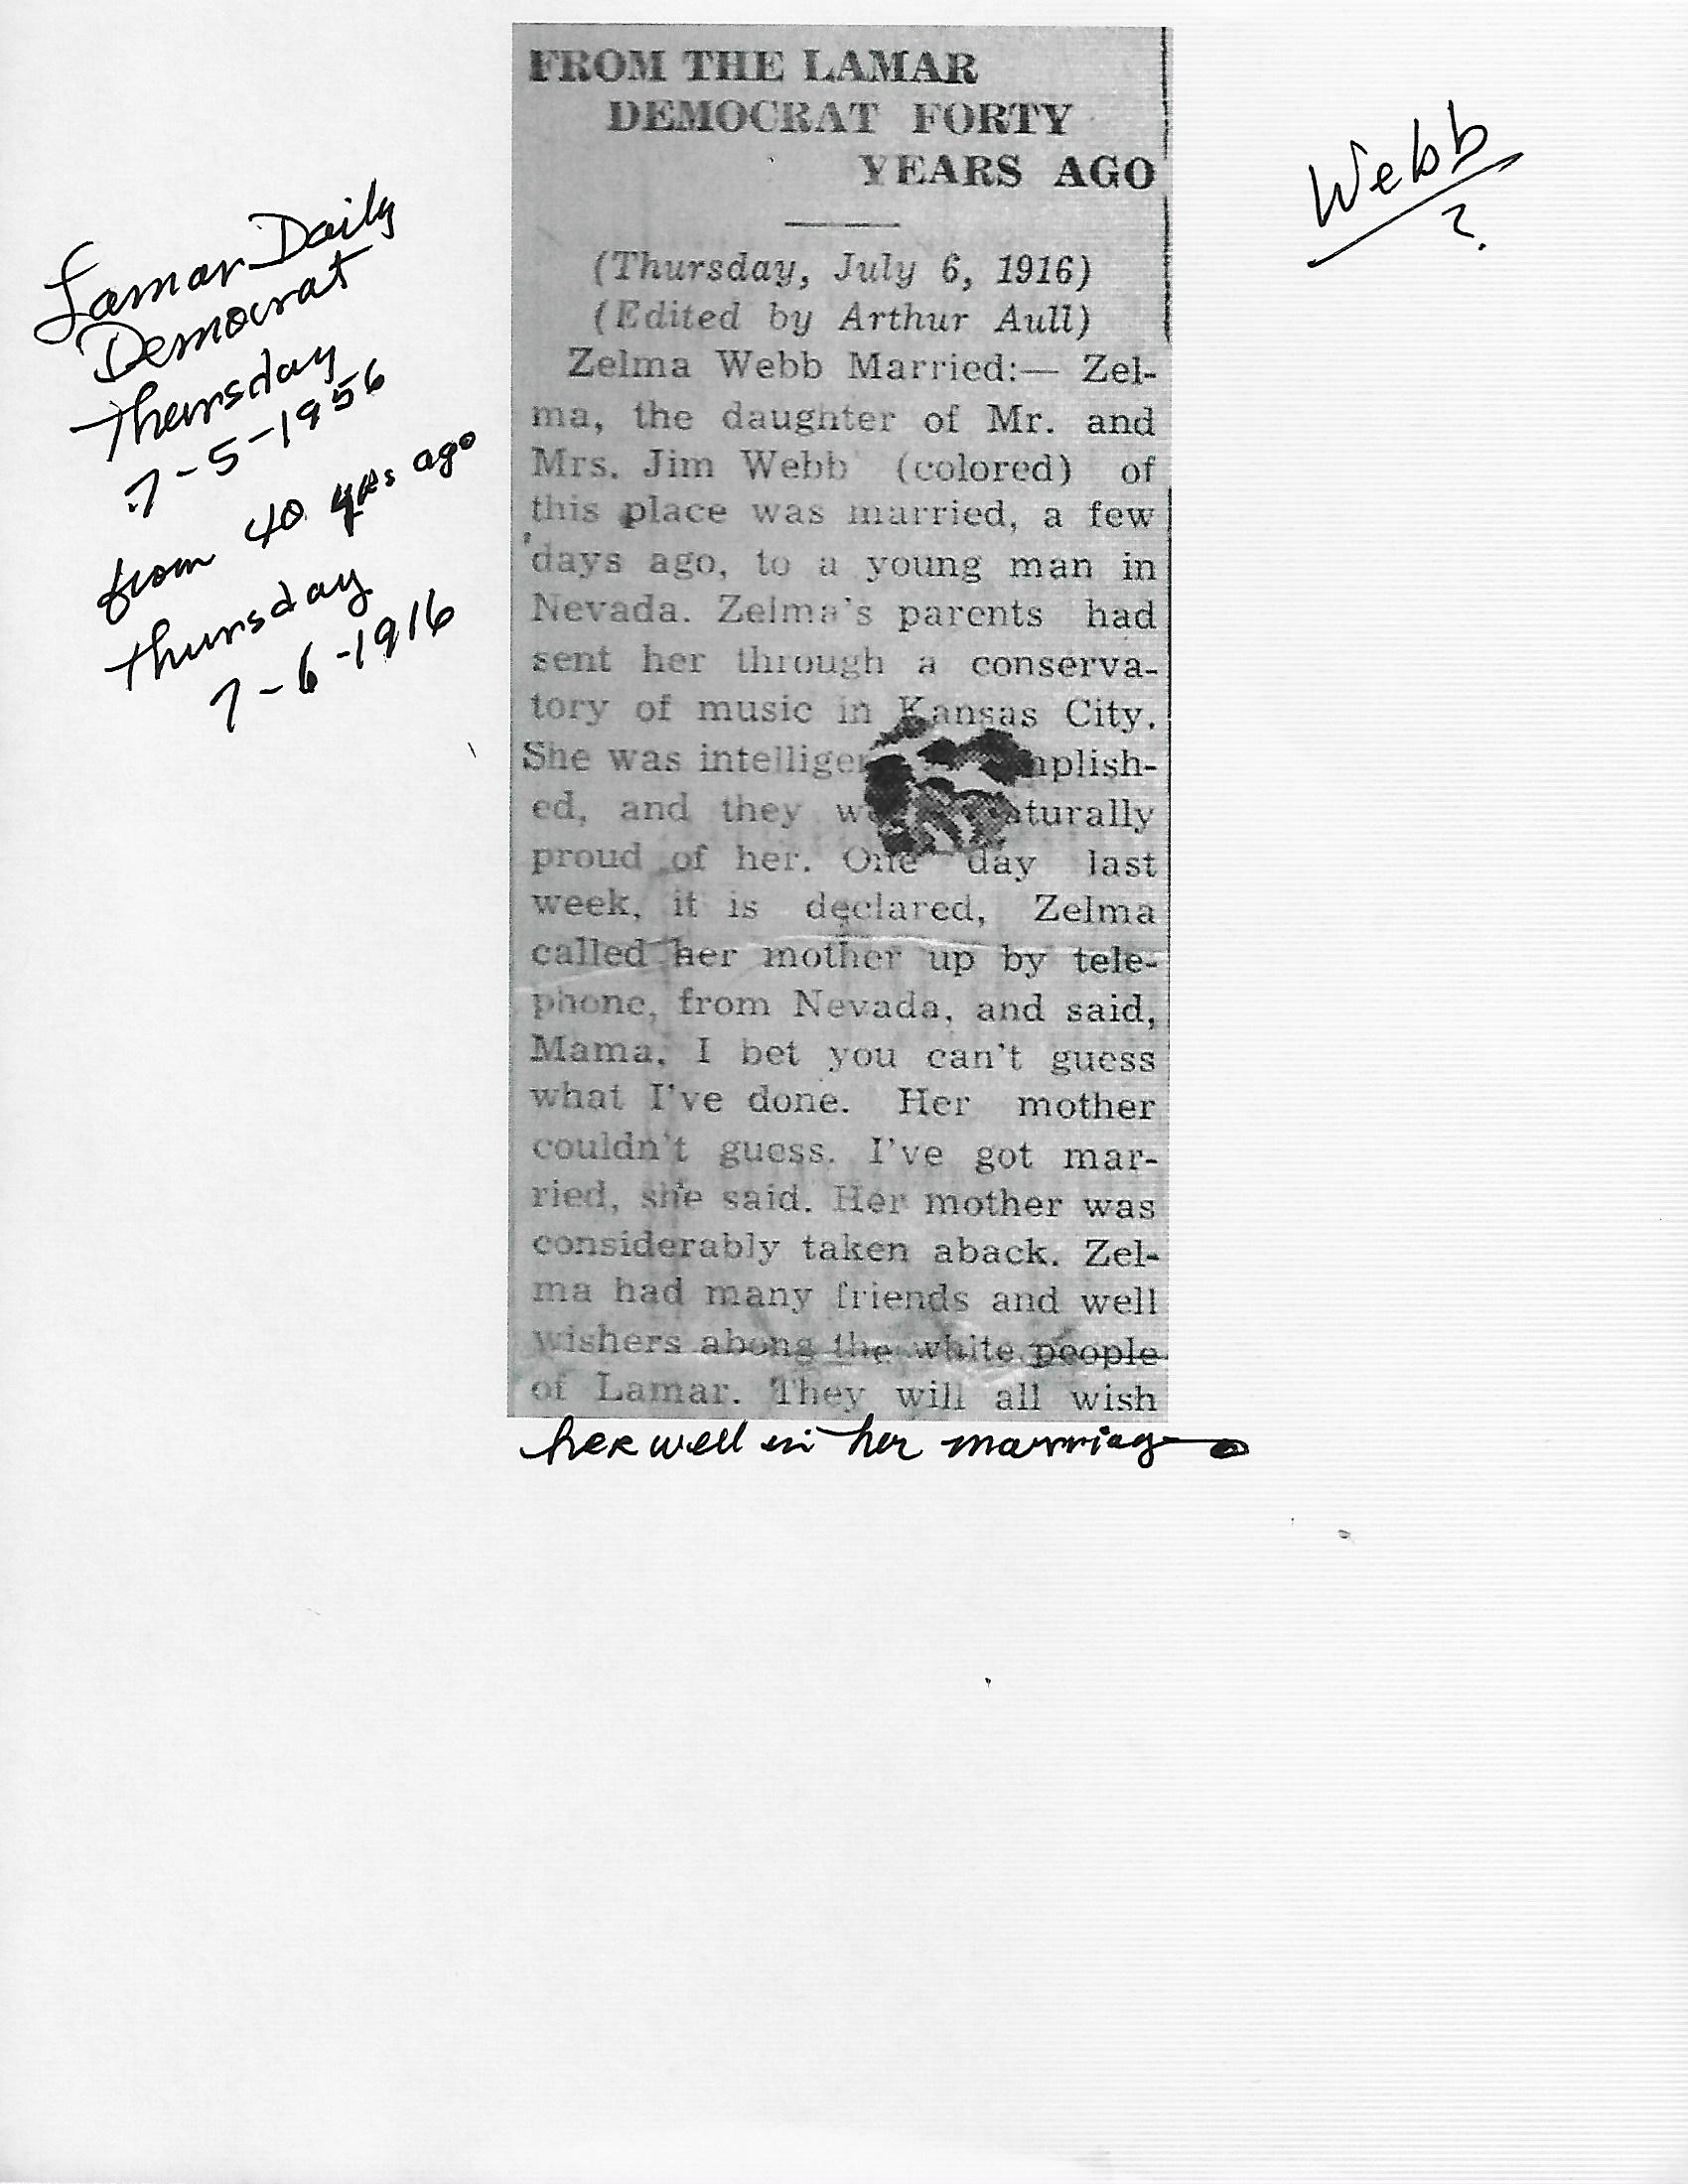 FROM THE LAMAR
DEMOCRAT FORTY
YEARS AGO
(Thursday, July 6, 1916)
(Edited by Arthur Aull)
Zelma Webb Married:— Zel-
ma, the daughter of Mr. and
Mrs. Jim Webb (colored) of
this place was married, a few
days ago, to a young man in
Nevada. Zelma's parents had
sent her through a conserva-
tory of music in Kansas City.
She was
ed, and they
proud of her. One day last
week, it is declared, Zelma
called her mother up by tele-
phone, from Nevada, and said,
Mama, I bet you can't guess
what I've done. Her mother
couldn't guess. I've got mar-
ried, she said. Her mother was
considerably taken aback. Zel-
ma had many friends and well
wishers abong the white people
of Lamar. They will all wish
her well in her marriage
Lamar Daily
Democrat
Thursday
7-5-1956
from 40 yrs ago
Thursday
7-6-1916
Webb
?